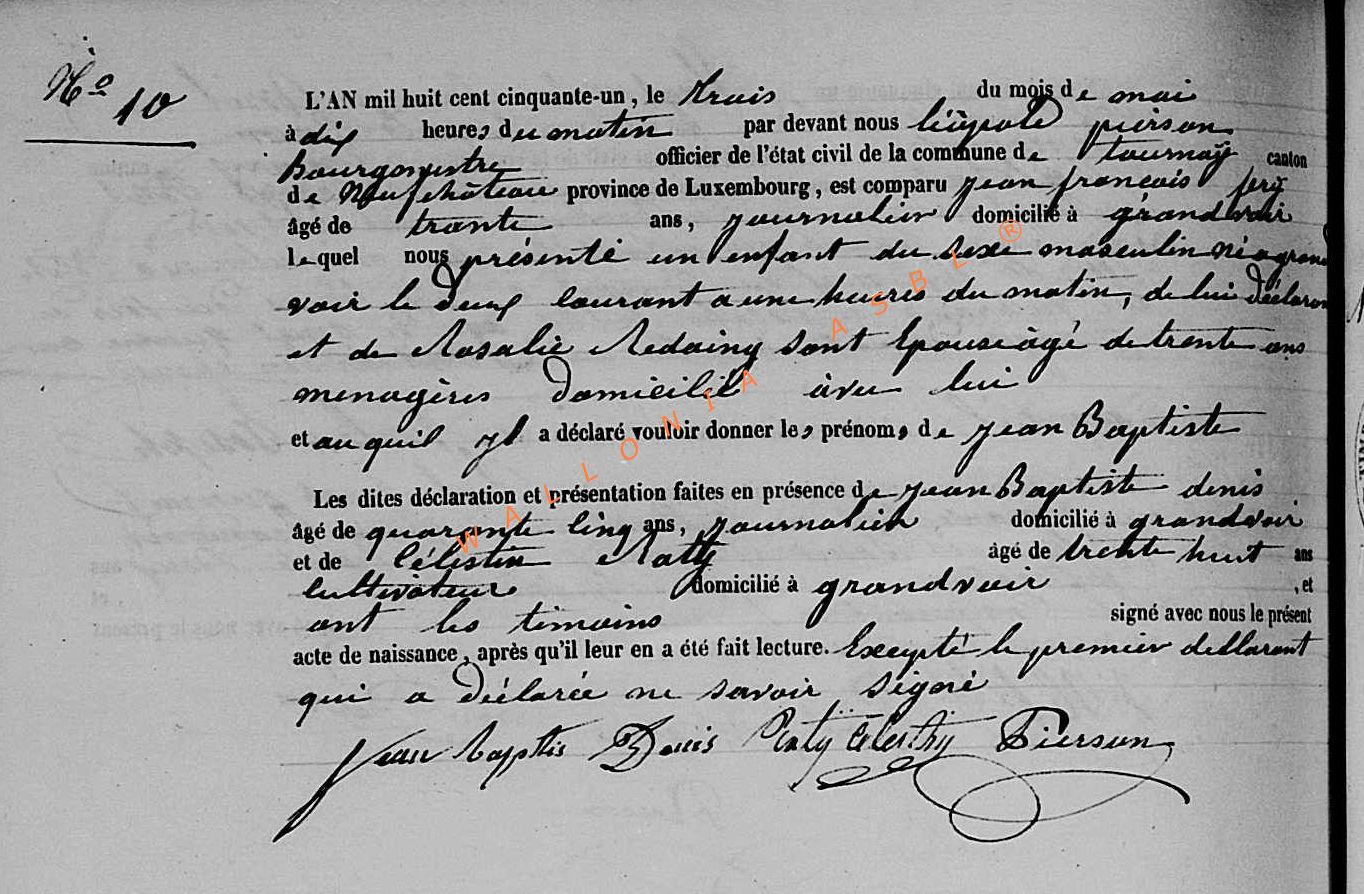 No 10
L'AN mil huit cent cinquante-un, le trois du mois de mai
à dix heures du matin par devant nous léopold pierson
Bourgmestre officier de l'état civil de la commune de tournay canton
de Neufchâteau province de Luxembourg, est comparu jean francois
âgé de trante ans, journalier domicilié à grandvoir
lequel nous présenté un enfant du sexe masculin né a grand
voir le deux courant a une heures du matin, de lui déclarant
et de Rosalie sont Epouse âgé de trente ans
menagères domicilié avec lui
et auquil yl a déclaré vouloir donner les prénoms de jean Baptiste
Les dites déclaration et présentation faites en présence de jean Baptiste denis
âgé de quarante cinq ans, journalier domicilié à grandvoir
et de Célestin Raty âgé de trente huit ans
cultivateur domicilié à grandvoir , et
ont les témoins signé avec nous le présent
acte de naissance, après qu'il leur en a été fait lecture. Excepté le premier dellarant
qui a déclarée ne savoir signé
Jean baptis Denis Raty Celestin Pierson
WALLONIA ASBL ®